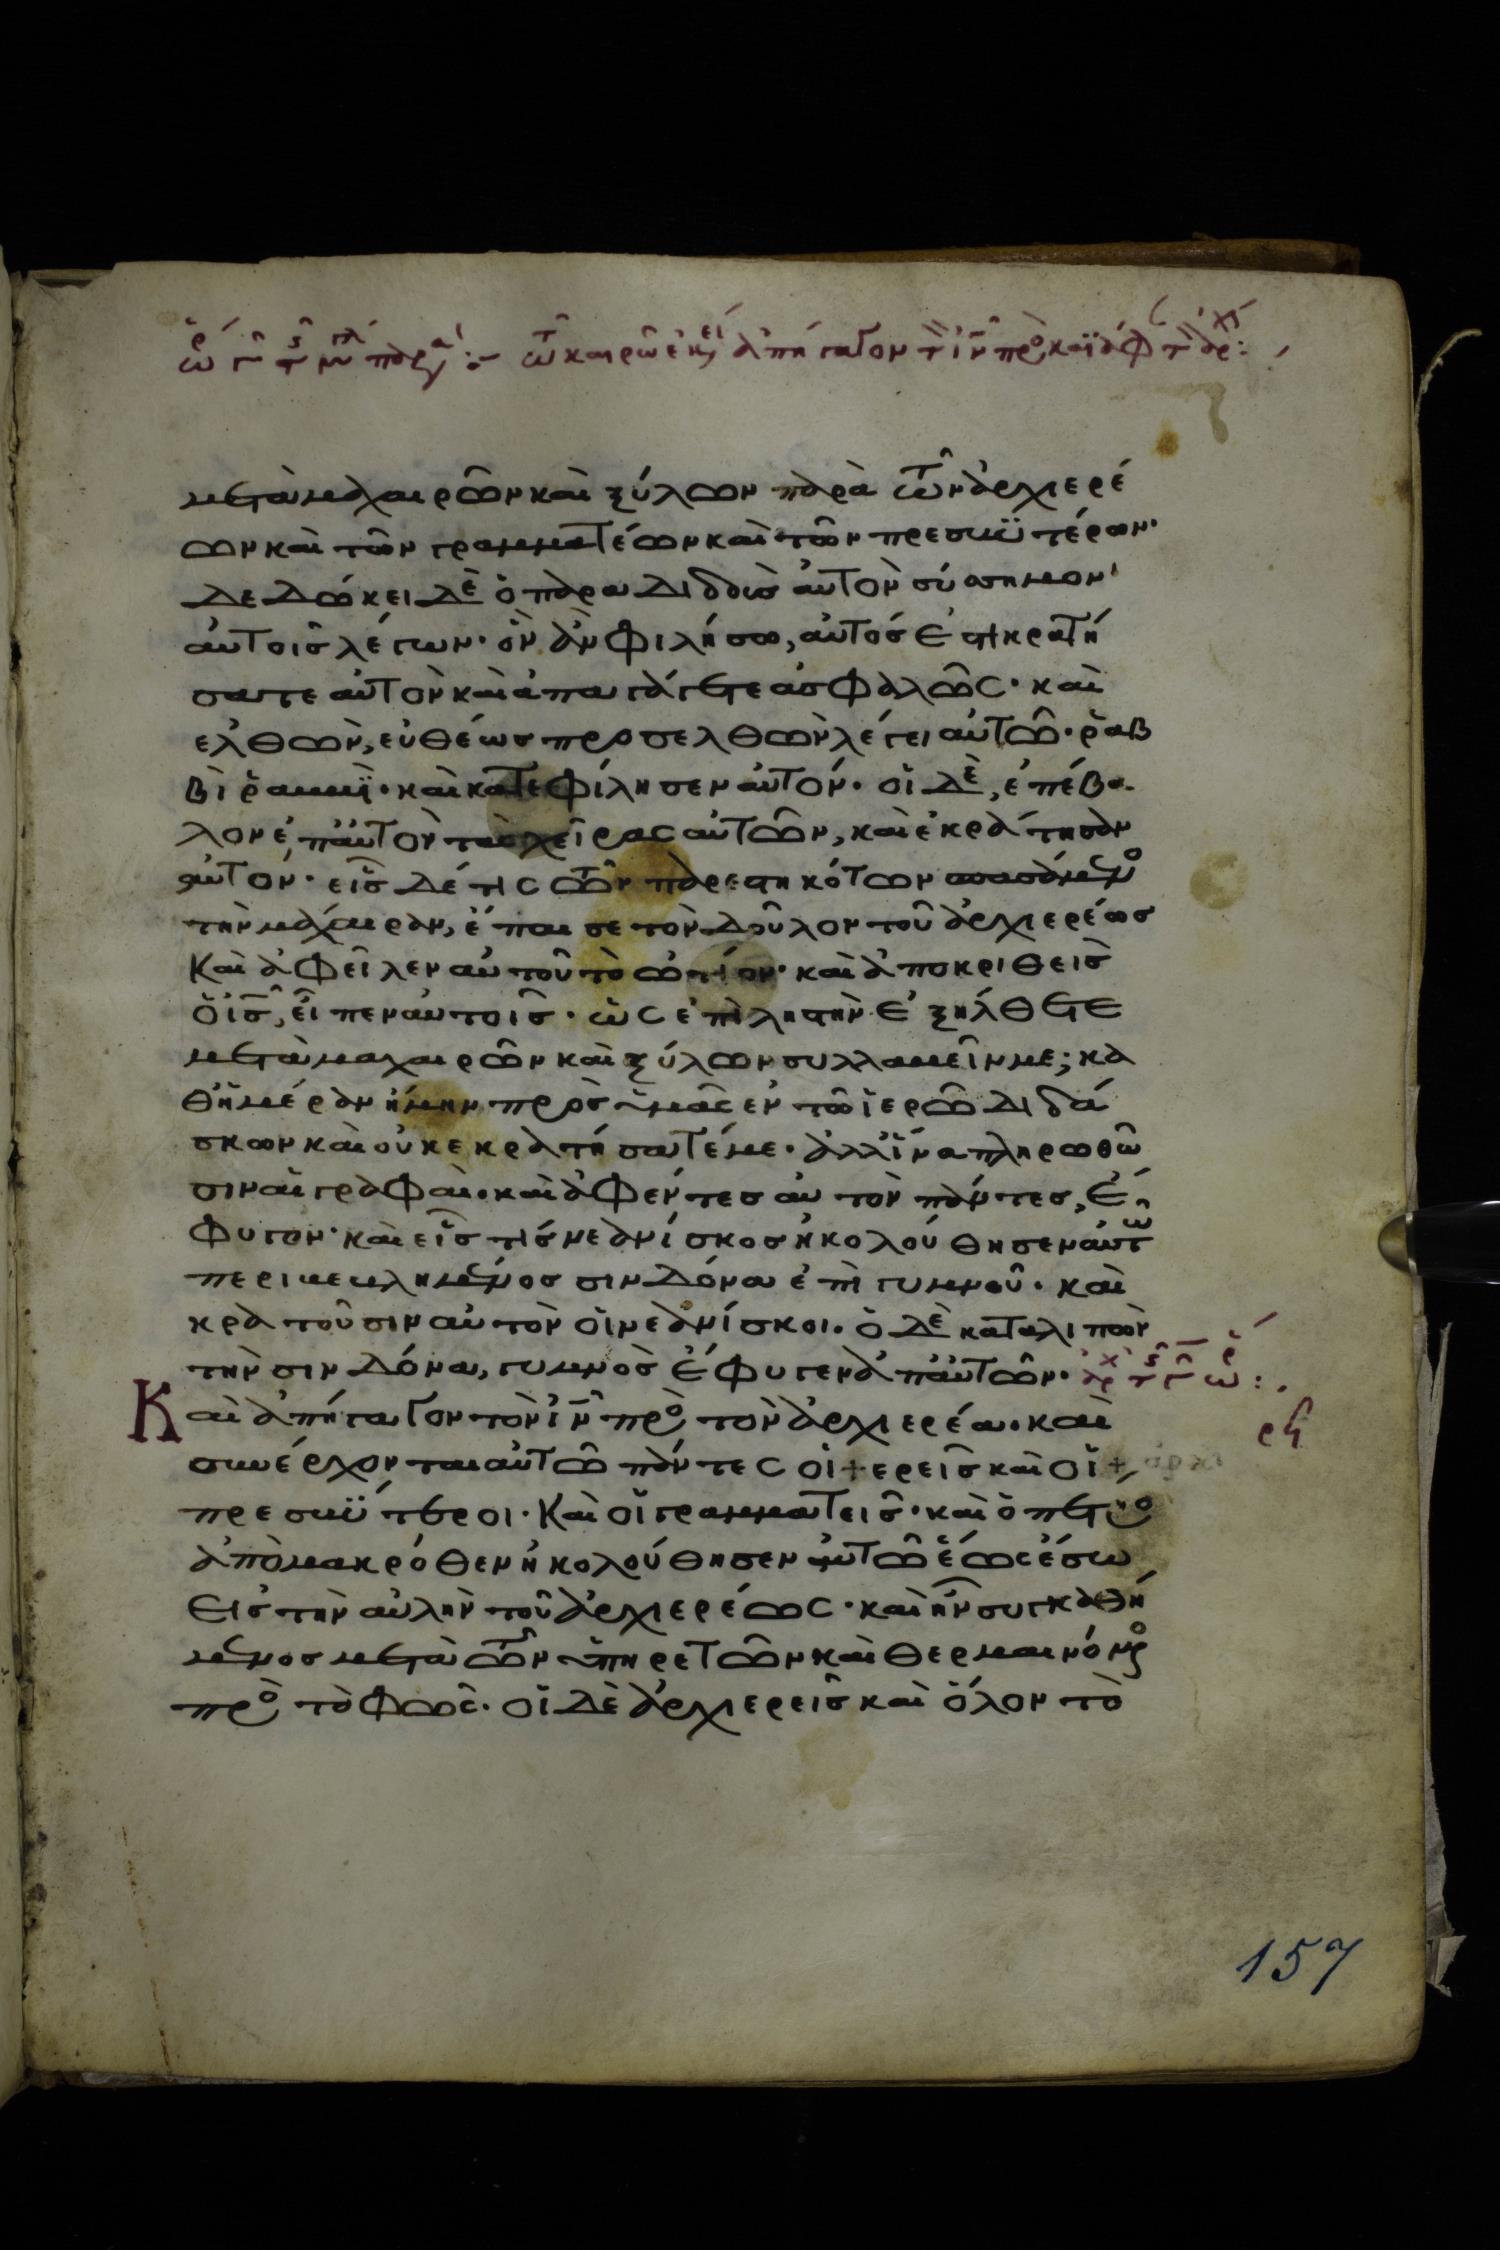 τῷ καιρῷ ἐκεί ἀπήγαγον τ ιν πρὸ καϊάφ τ ἀρχ:
μετὰ μαχαιρῶν καὶ ξύλων παρὰ τῶν ἀρχιερέ
ων καὶ τῶν γραμματέων καὶ τῶν πρεσβϋτέρων·
δεδώκει δὲ ὁ παραδιδοὺς αὐτὸν σύσσημον
αὐτοῖς λέγων· ὃν ἂν φιλήσω, αὐτός ἐστι κρατή
σατε αὐτὸν καὶ ἀπαγάγετε ἀσφαλῶς· καὶ
ελθὼν, εὐθέως προσελθὼν λέγει αὐτῶ· ῥαβ
βὶ ῥαββῒ· καὶ κατεφίλησεν αὐτόν· οἱ δὲ, ἐπέβα
λον ἐπ' αὐτὸν τὰς χεῖρας αὐτῶν, καὶ ἐκράτησαν
αὐτόν· εἷς δέ τις τῶν παρεστηκότων σπασάμενο
τὴν μάχαιραν, ἔπαισε τὸν δοῦλον τοῦ ἀρχιερέως
Καὶ ἀφεῖλεν αὐτοῦ τὸ ὠτίον· καὶ ἀποκριθεὶς
ὁ ις, εἶπεν αὐτοῖς· ὡς ἐπὶ ληστὴν ἐξήλθετε
μετὰ μαχαιρῶν καὶ ξύλων συλλαβεῖν με; κα
θ' ἡμέραν ἤμην πρὸς ὑμᾶς ἐν τῶ ἱερῶ διδά
σκων καὶ οὐκ εκρατήσατέ με· ἀλλ' ἵνα πληρωθῶ
σιν αἱ γραφαὶ· καὶ ἀφέντες αὐτὸν πάντες, ἔ
φυγον· καὶ εἷς τίς νεανίσκος ἠκολούθησεν αὐτῶ
περιβεβλημένος σινδόνα ἐπὶ γυμνοῦ· καὶ
κρατοῦσιν αὐτὸν οἱ νεανίσκοι· ὁ δὲ καταλιπὼν
τὴν σινδόνα, γυμνὸς ἔφυγεν ἀπ' αὐτῶν·
Καὶ ἀπήγαγον τὸν ιν πρὸ τὸν ἀρχιερέα· καὶ
συνέρχονται αὐτῶ πάντες οἱ + ερεῖς καὶ οἱ + ἀρχι
πρεσβϋτεροι· Καὶ οἱ γραμματεῖς· καὶ ὁ πέτρο
ἀπὸ μακρόθεν ἠκολούθησεν αὐτῶ ἕως ἔσω
Εἰς τὴν αὐλὴν τοῦ ἀρχιερέως· καὶ ἦν συγκαθή
μενος μετὰ τῶν ὑπηρετῶν καὶ θερμαινόμενο
πρὸ τὸ φῶς· οἱ δὲ ἀρχιερεῖς καὶ ὅλον τὸ
157